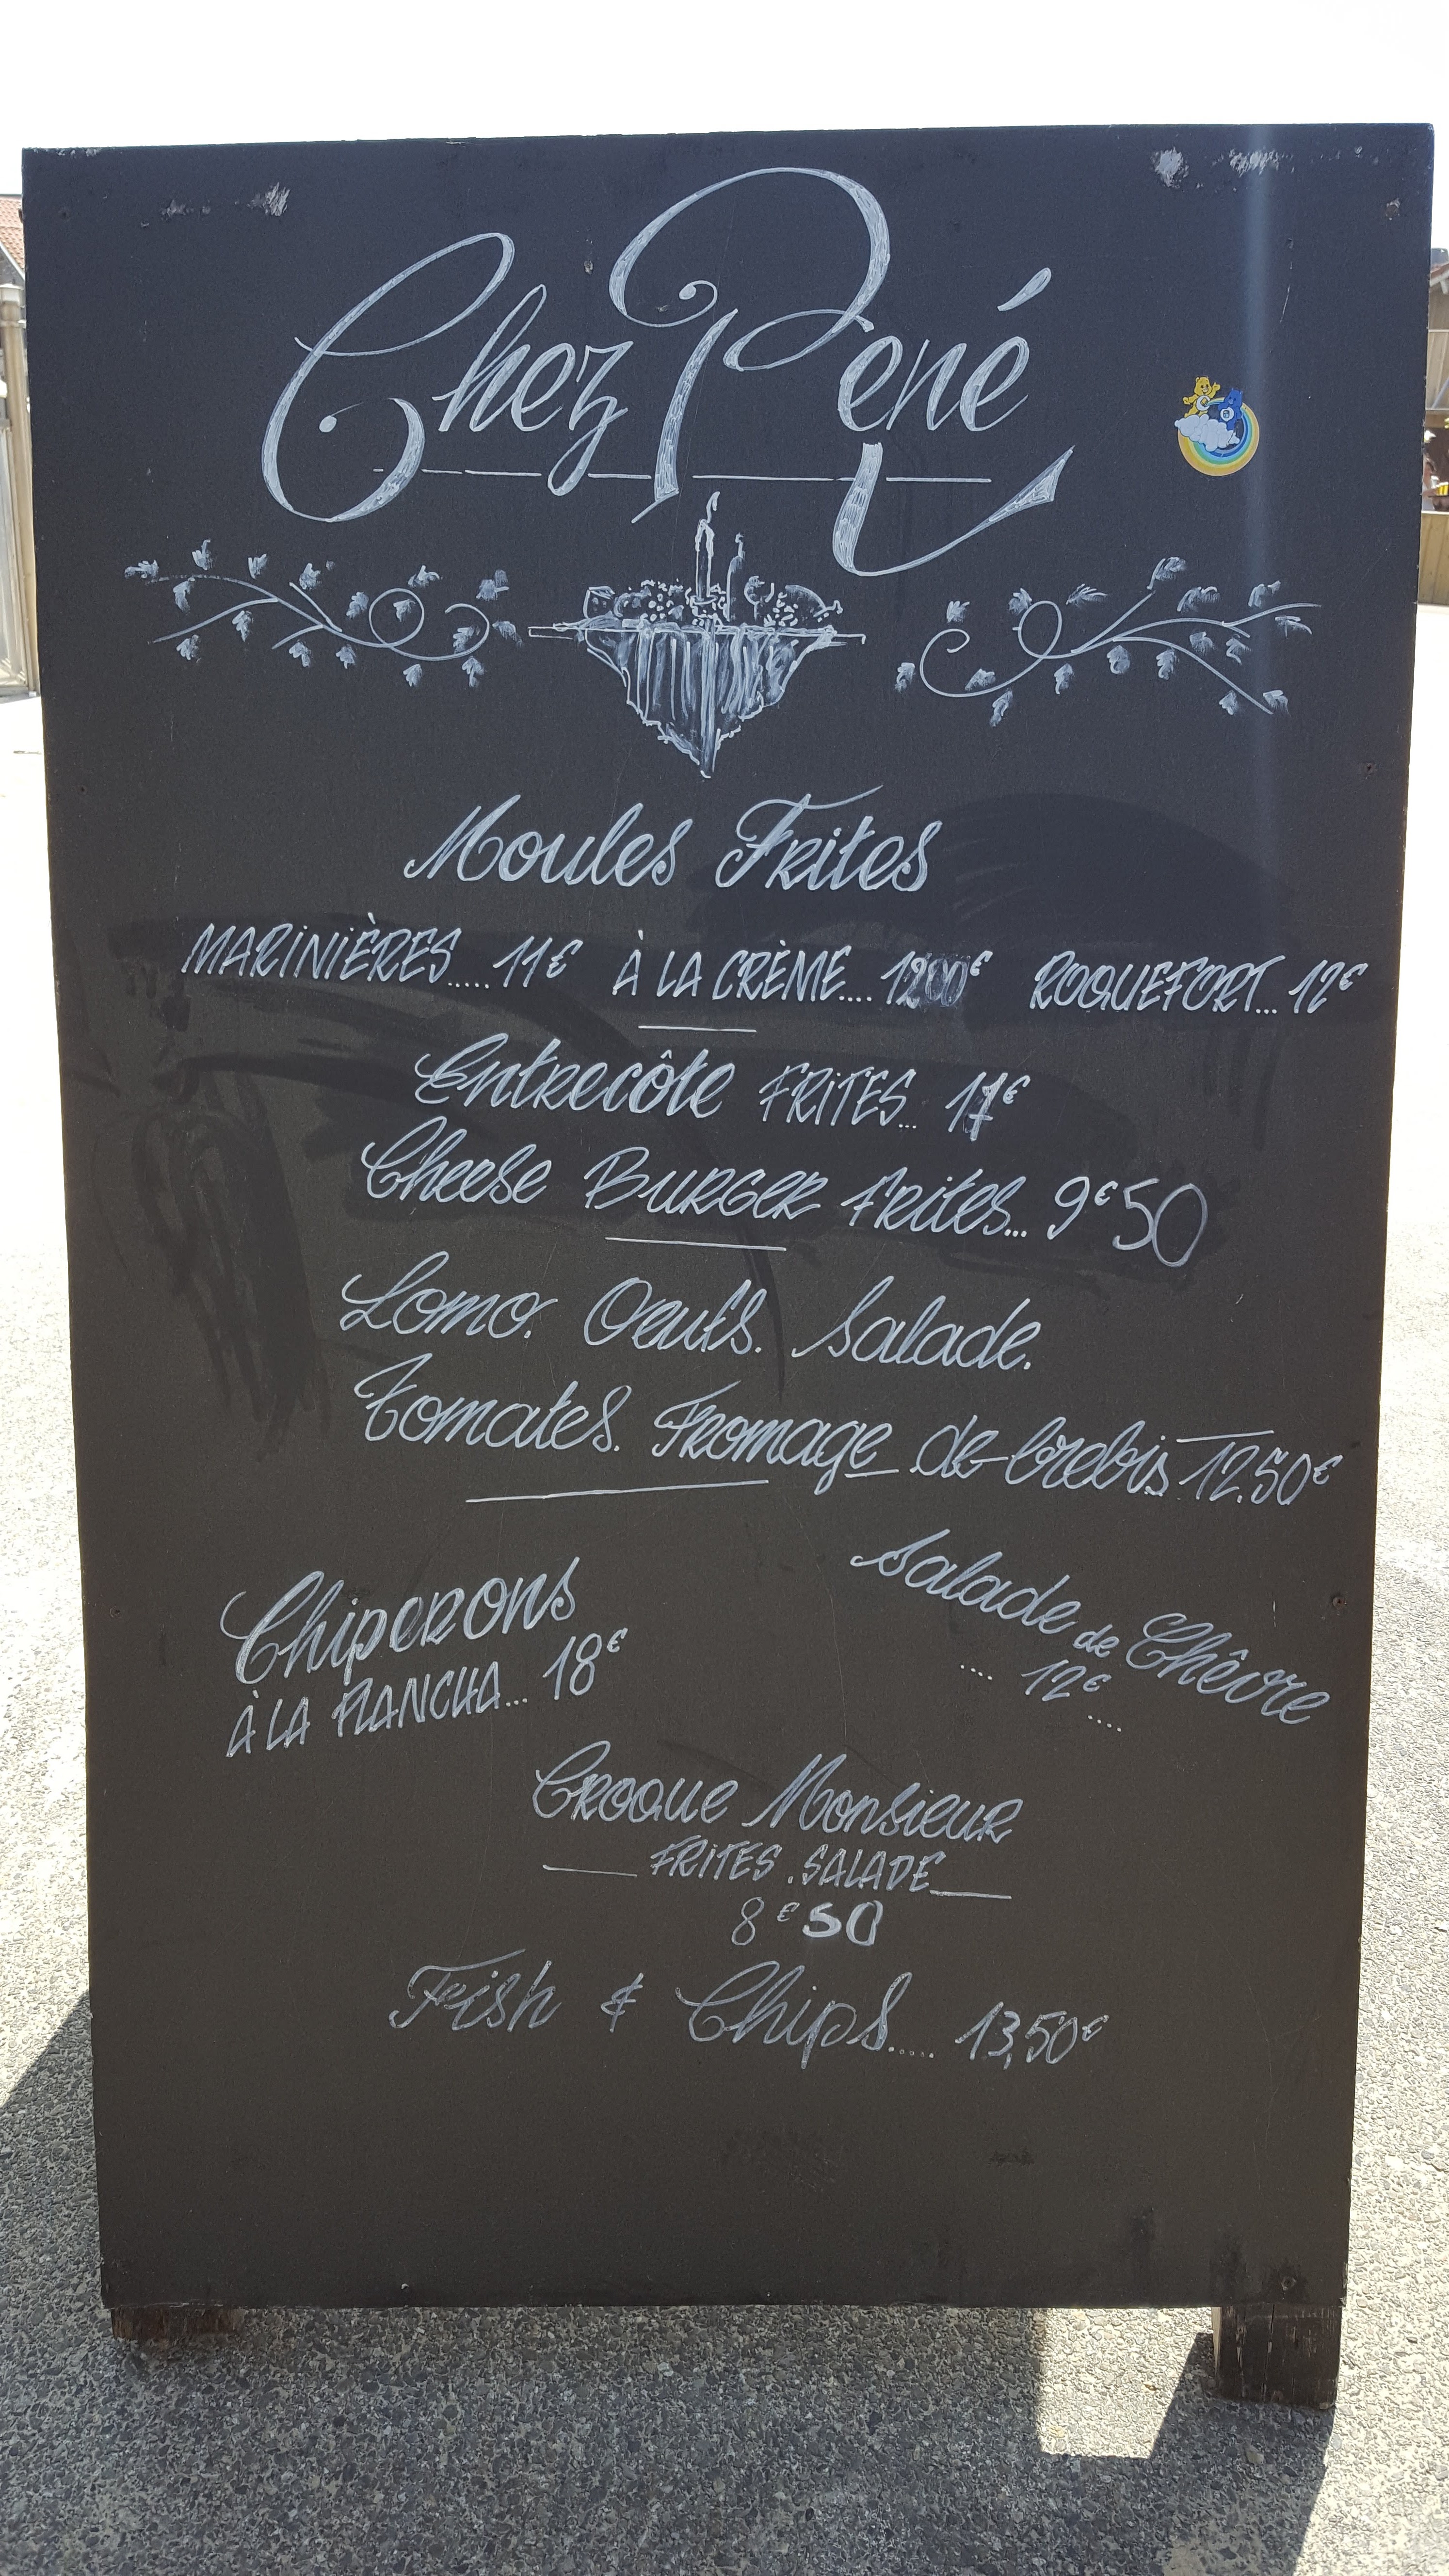 Chez René
Moules Frites
MARINIÈRES..... 11€ À LA CRÈME.... 1200€ ROQUEFORT... 12€
Entrecôte FRITES... 17€
Cheese BURGER Frites... 9€50
Lomo. Oeufs. Salade.
Tomates. Fromage de brebis 12.50€
Chiperons
À LA PLANCHA... 18€
Salade de Chêvre
.... 12€ ....
CROQUE Monsieur
FRITES. SALADE
8€50
Fish & Chips..... 13,50€